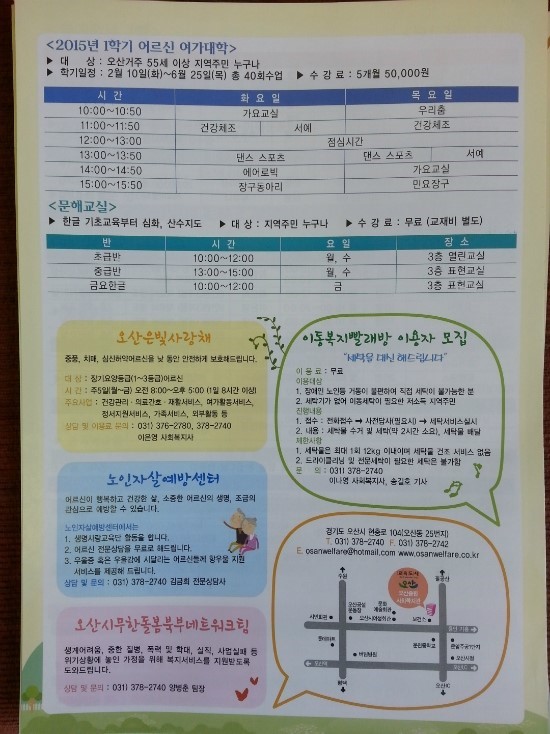 <2015년 1학기 어르신 여가대학>
▶ 대 상 : 오산거주 55세 이상 지역주민 누구나
▶ 학기일정 : 2월 10일(화)~6월 25일(목) 총 40회수업 ▶ 수 강 료 : 5개월 50,000원
시 간 화 요 일 목 요 일
10:00~10:50 가요교실 우리춤
11:00~11:50 건강체조 서예 건강체조
12:00~13:00 점심시간
13:00~13:50 댄스 스포츠 댄스 스포츠 서예
14:00~14:50 에어로빅 가요교실
15:00~15:50 장구동아리 민요장구
<문해교실>
▶ 한글 기초교육부터 심화, 산수지도 ▶ 대 상 : 지역주민 누구나 ▶ 수 강 료 : 무료 (교재비 별도)
반 시 간 요 일 장 소
초급반 10:00~12:00 월, 수 3층 열린교실
중급반 13:00~15:00 월, 수 3층 표현교실
금요한글 10:00~12:00 금 3층 표현교실
오산은빛사랑채
중풍, 치매, 심신허약어르신을 낮 동안 안전하게 보호해드립니다.
대 상 : 장기요양등급(1~3등급)어르신
시 간 : 주5일(월~금) 오전 8:00~오후 5:00 (1일 8시간 이상)
주요사업 : 건강관리 · 의료간호 · 재활서비스, 여가활동서비스,
정서지원서비스, 가족서비스, 외부활동 등
상담 및 이용료 문의 : 031) 376-2780, 378-2740
이은영 사회복지사
이동복지빨래방 이용자 모집
"세탁을 대신 해드립니다"
이 용 료 : 무료
이용대상
1. 장애인 노인등 거동이 불편하여 직접 세탁이 불가능한 분
2. 세탁기가 없어 이동세탁이 필요한 저소득 지역주민
진행내용
1. 접수 : 전화접수 → 사전답사(필요시) → 세탁서비스실시
2. 내용 : 세탁물 수거 및 세탁(약 2시간 소요), 세탁물 배달
제한사항
1. 세탁물은 최대 1회 12kg 이내이며 세탁물 건조 서비스 없음
2. 드라이클리닝 및 전문세탁이 필요한 세탁은 불가함
문 의 : 031) 378-2740
이나영 사회복지사, 송길호 기사
노인자살예방센터
어르신이 행복하고 건강한 삶, 소중한 어르신의 생명, 조금의
관심으로 예방할 수 있습니다.
노인자살예방센터에서는
1. 생명사랑교육단 활동을 합니다.
2. 어르신 전문상담을 무료로 해드립니다.
3. 우울증 혹은 우울감에 시달리는 어르신들께 항우울 지원
서비스를 제공해 드립니다.
상담 및 문의 : 031) 378-2740 김금희 전문상담사
오산시무한돌봄북부네트워크팀
생계어려움, 중한 질병, 폭력 및 학대, 실직, 사업실패 등
위기상황에 놓인 가정을 위해 복지서비스를 지원받도록
도와드립니다.
상담 및 문의 : 031) 378-2740 양병춘 팀장
경기도 오산시 현충로 104(오산동 25번지)
T. 031) 378-2740 F. 031) 378-2742
E. osanwelfare@hotmail.com www.osanwelfare.co.kr
수원
오산
종합
사회복지관
문화
예술회관
오산시여성회관
보건소
시민회관
롯데마트
운천중학교
오산시청
평택
오산IC